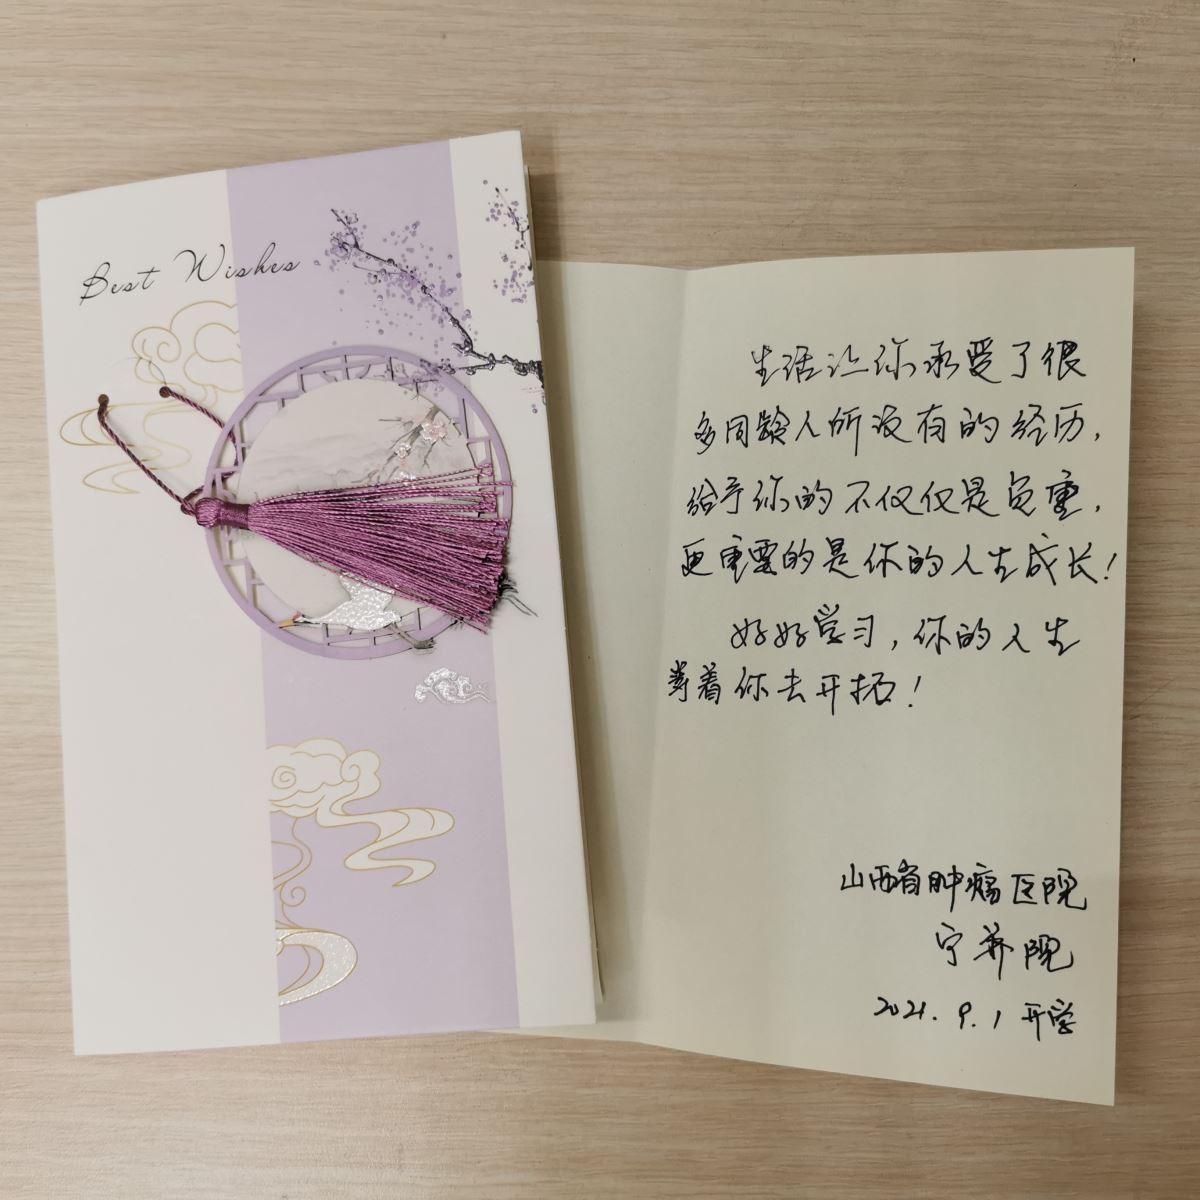 Best Wishes
生活让你承受了很
多同龄人所没有的经历,
给予你的不仅仅是负重,
更重要的是你的人生成长!
好好学习,你的人生
等着你去开拓!
山西省肿瘤医院
宁养院
2021.9.1 开学